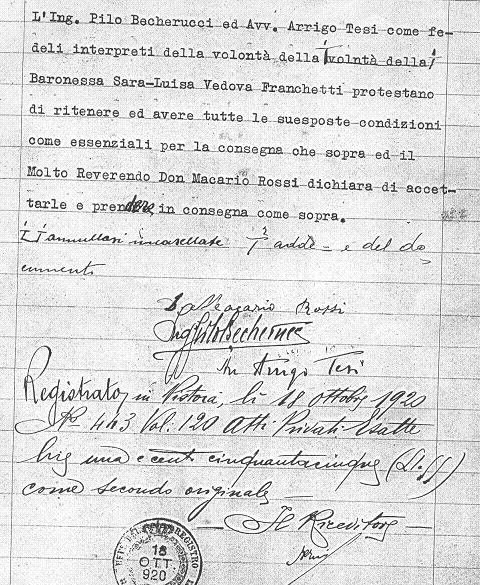 L'Ing. Pilo Becherucci ed Avv. Arrigo Tesi come fe-
deli interpreti della volontà della volntà della
Baronessa Sara-Luisa Vedova Franchetti protestano
di ritenere ed avere tutte le suesposte condizioni
come essenziali per la consegna che sopra ed il
Molto Reverendo Don Macario Rossi dichiara di accet-
tarle e prendere in consegna come sopra.
annullasi incasellate e del do
cumento
Macario Rossi
Ing Pilo Becherucci
Arrigo Tesi
Registrato in Pistoia, lì 18 ottobre 1920
No 443 Vol. 120 Atti Privati Esatte
lire una e cent cinquantacinque
come secondo originale
Il Ricevitore
18
OTT
920